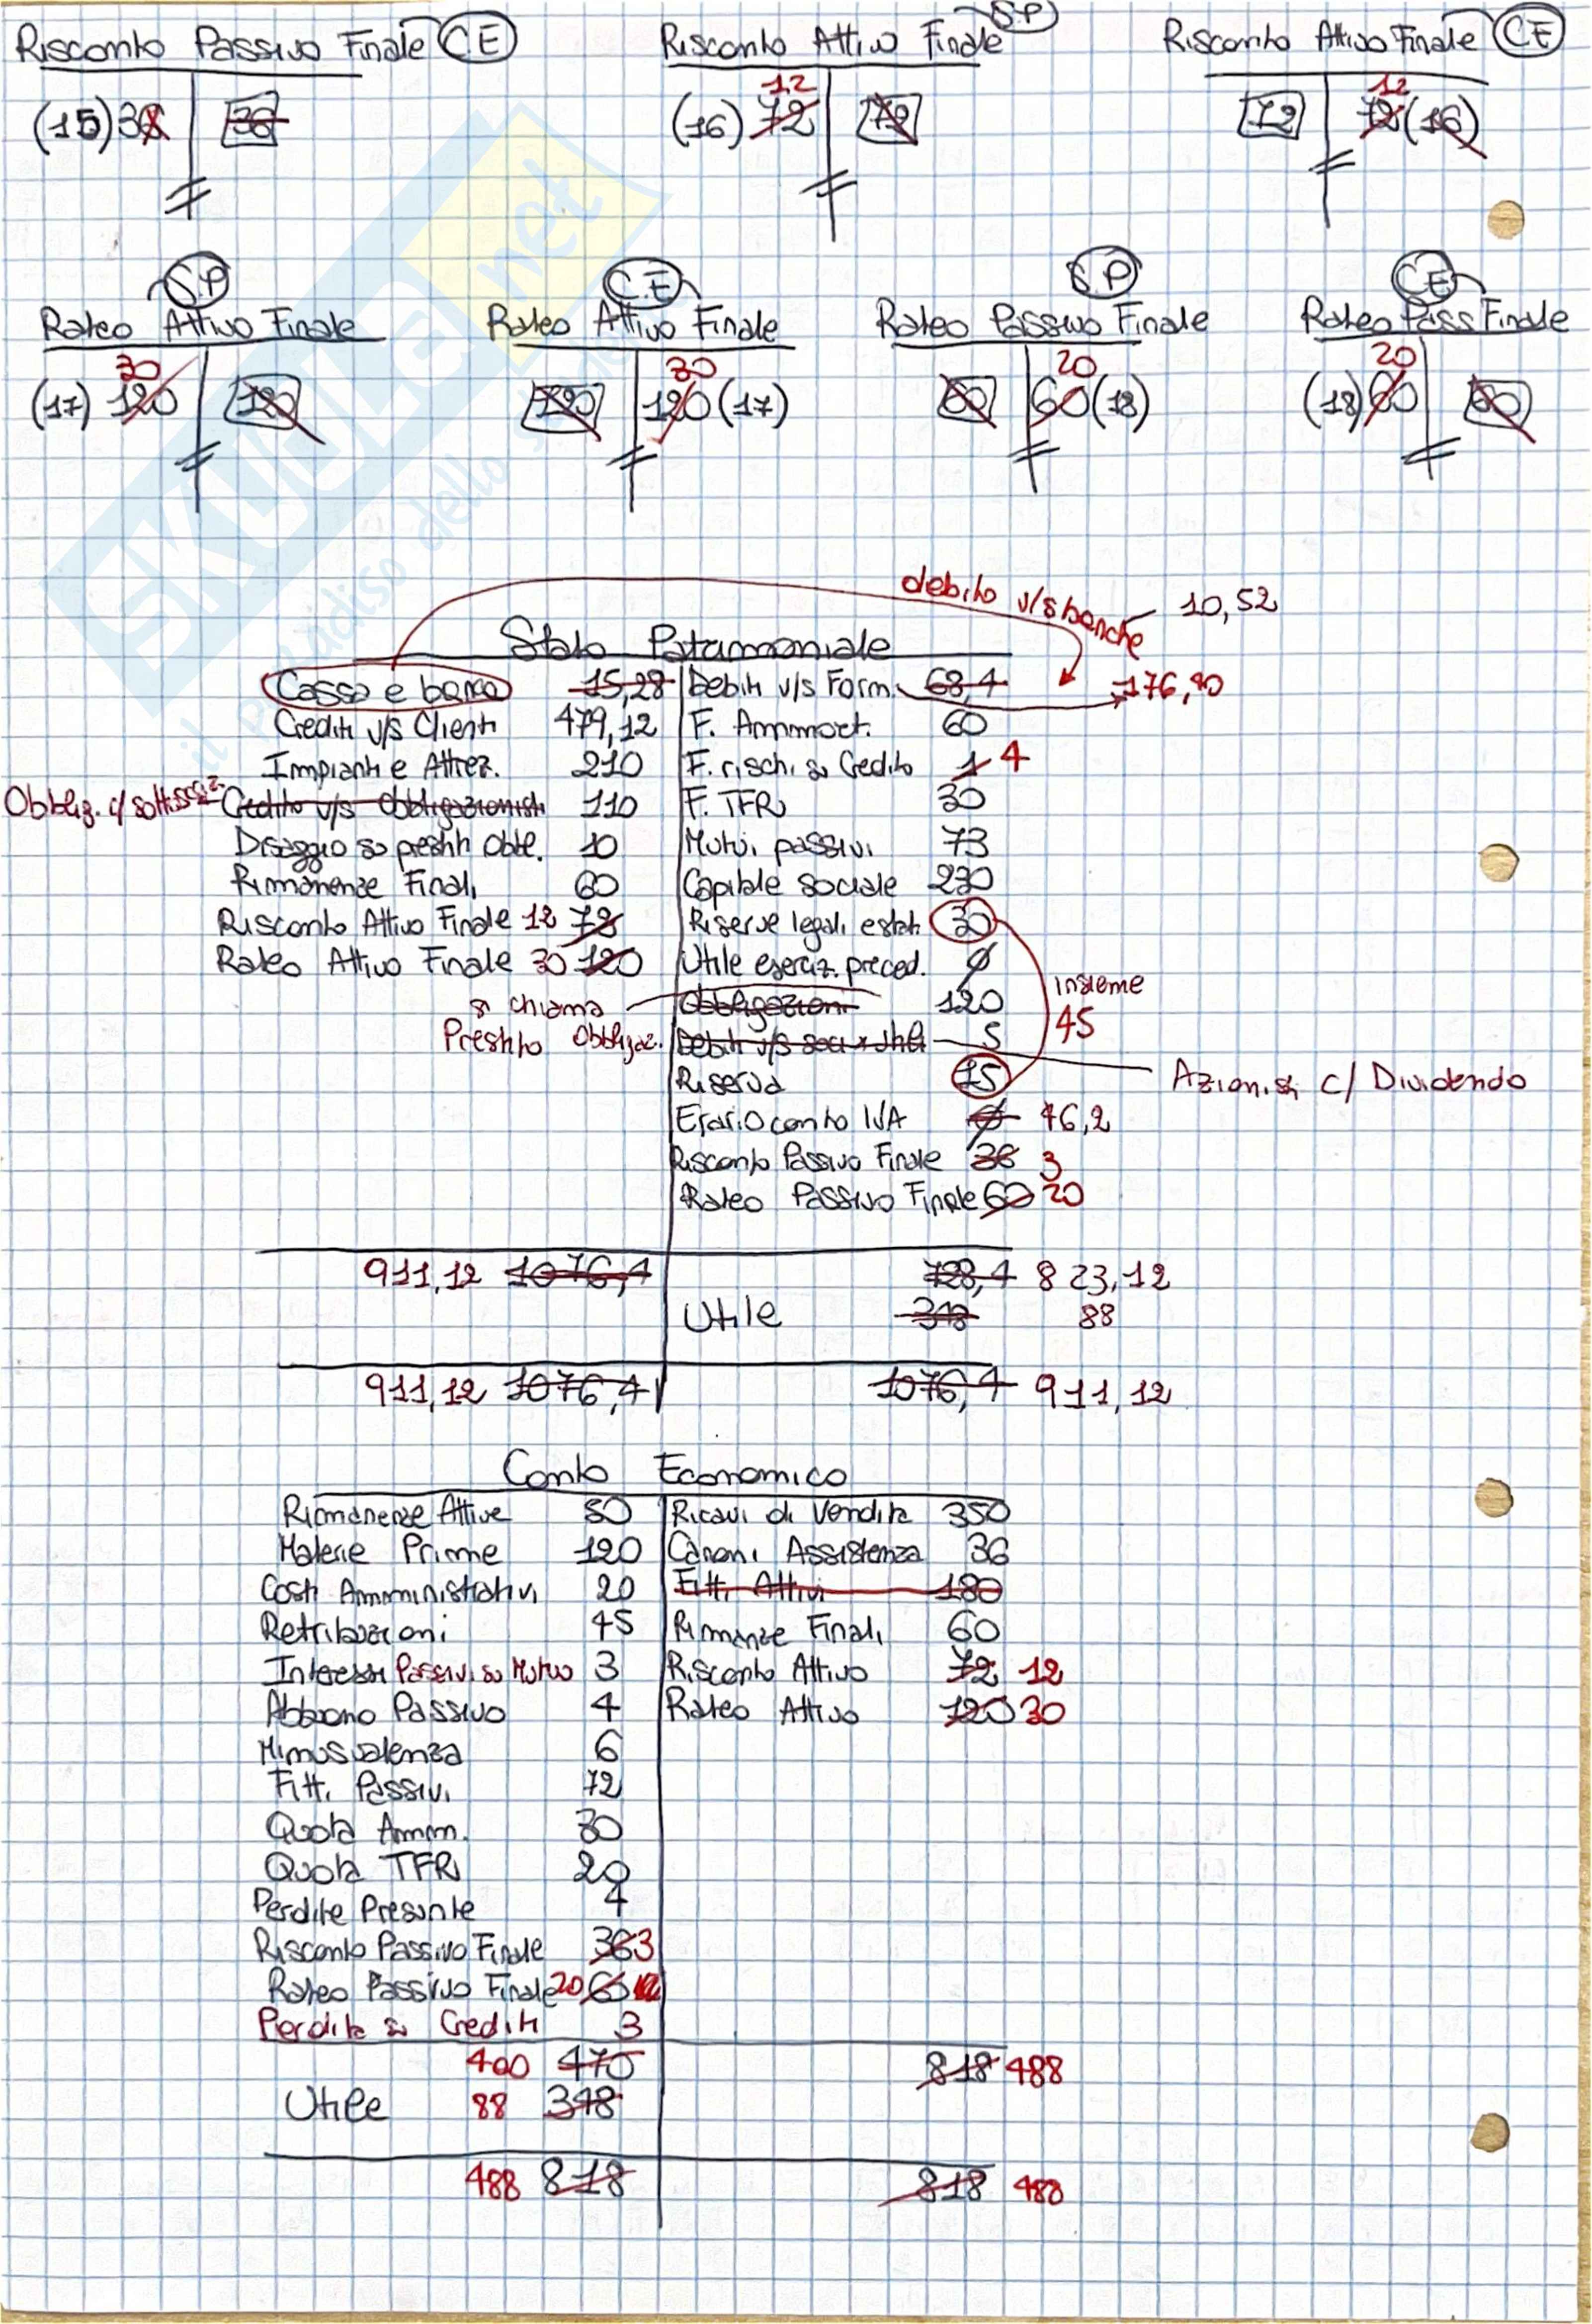 Risconto Passivo Finale CE
Risconto Attivo Finale S.P
Risconto Attivo Finale CE
(15) 36 36
12
(16) 72 72
12
72 72 (16)
SKUOLA.net
il paradiso dello studente
S.P
Rateo Attivo Finale
C.E
Rateo Attivo Finale
S.P
Rateo Passivo Finale
CE
Rateo Pass Finale
30
(17) 120 120
30
120 120 (17)
20
60 60 (18)
20
(18) 60 60
debito v/s banche 10,52
Stato Patrimoniale
Cassa e banca 15,28 Debiti v/s Forn. 68,4 176,90
Crediti v/s Clienti 479,12 F. Ammort. 60
Impianti e Attrez. 210 F. rischi su Credito 1 4
Obbligaz. c/ sottoscriz. Credito v/s Obbligazionisti 110 F. TFR 30
Disaggio su prestiti Obbl. 10 Mutui passivi 73
Rimanenze Finali 60 Capitale sociale 230
Risconto Attivo Finale 12 72 Riserve legali e stat. 30
Rateo Attivo Finale 30 120 Utile eserciz. preced. Ø
insieme
si chiama Obbligazioni 120
45
Prestito Obbligaz. Debiti v/s soci x utili 5
Riserva 15 Azionisti c/ Dividendo
Erario conto IVA Ø 46,2
Risconto Passivo Finale 36 3
Rateo Passivo Finale 60 20
911,12 1076,4 728,4 823,12
Utile 348 88
911,12 1076,4 1076,4 911,12
Conto Economico
Rimanenze Attive 50 Ricavi di Vendita 350
Materie Prime 120 Canoni Assistenza 36
Costi Amministrativi 20 Fitti Attivi 180
Retribuzioni 45 Rimanze Finali 60
Interessi Passivi su Mutuo 3 Risconto Attivo 72 12
Abbuono Passivo 4 Rateo Attivo 120 30
Minusvalenza 6
Fitti Passivi 72
Quota Amm. 30
Quota TFR 20
Perdite Presunte 4
Risconto Passivo Finale 36 3
Rateo Passivo Finale 20 60
Perdita su Crediti 3
400 470 818 488
Utile 88 348
488 818 818 488